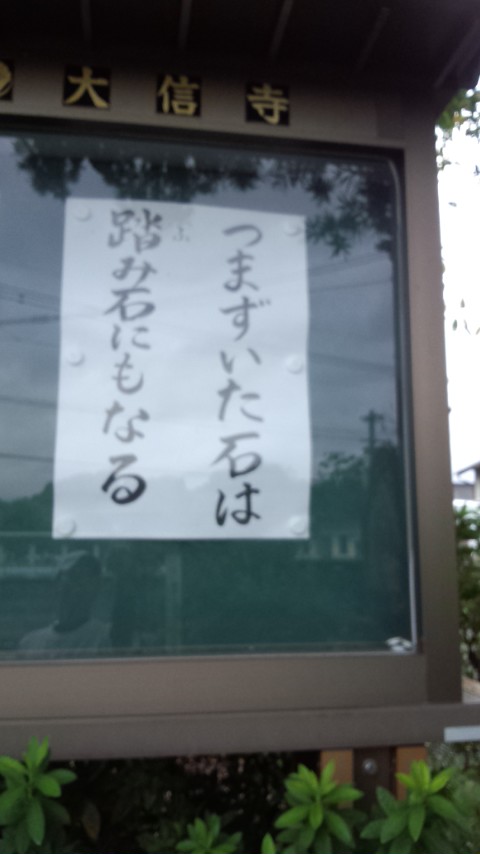 大信寺
つまずいた石は
踏み石にもなる
ふ